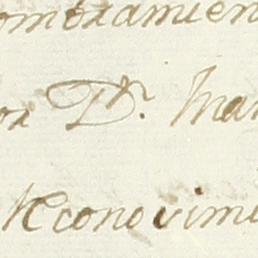 ombramien
or Dn. Man
Reconocimi